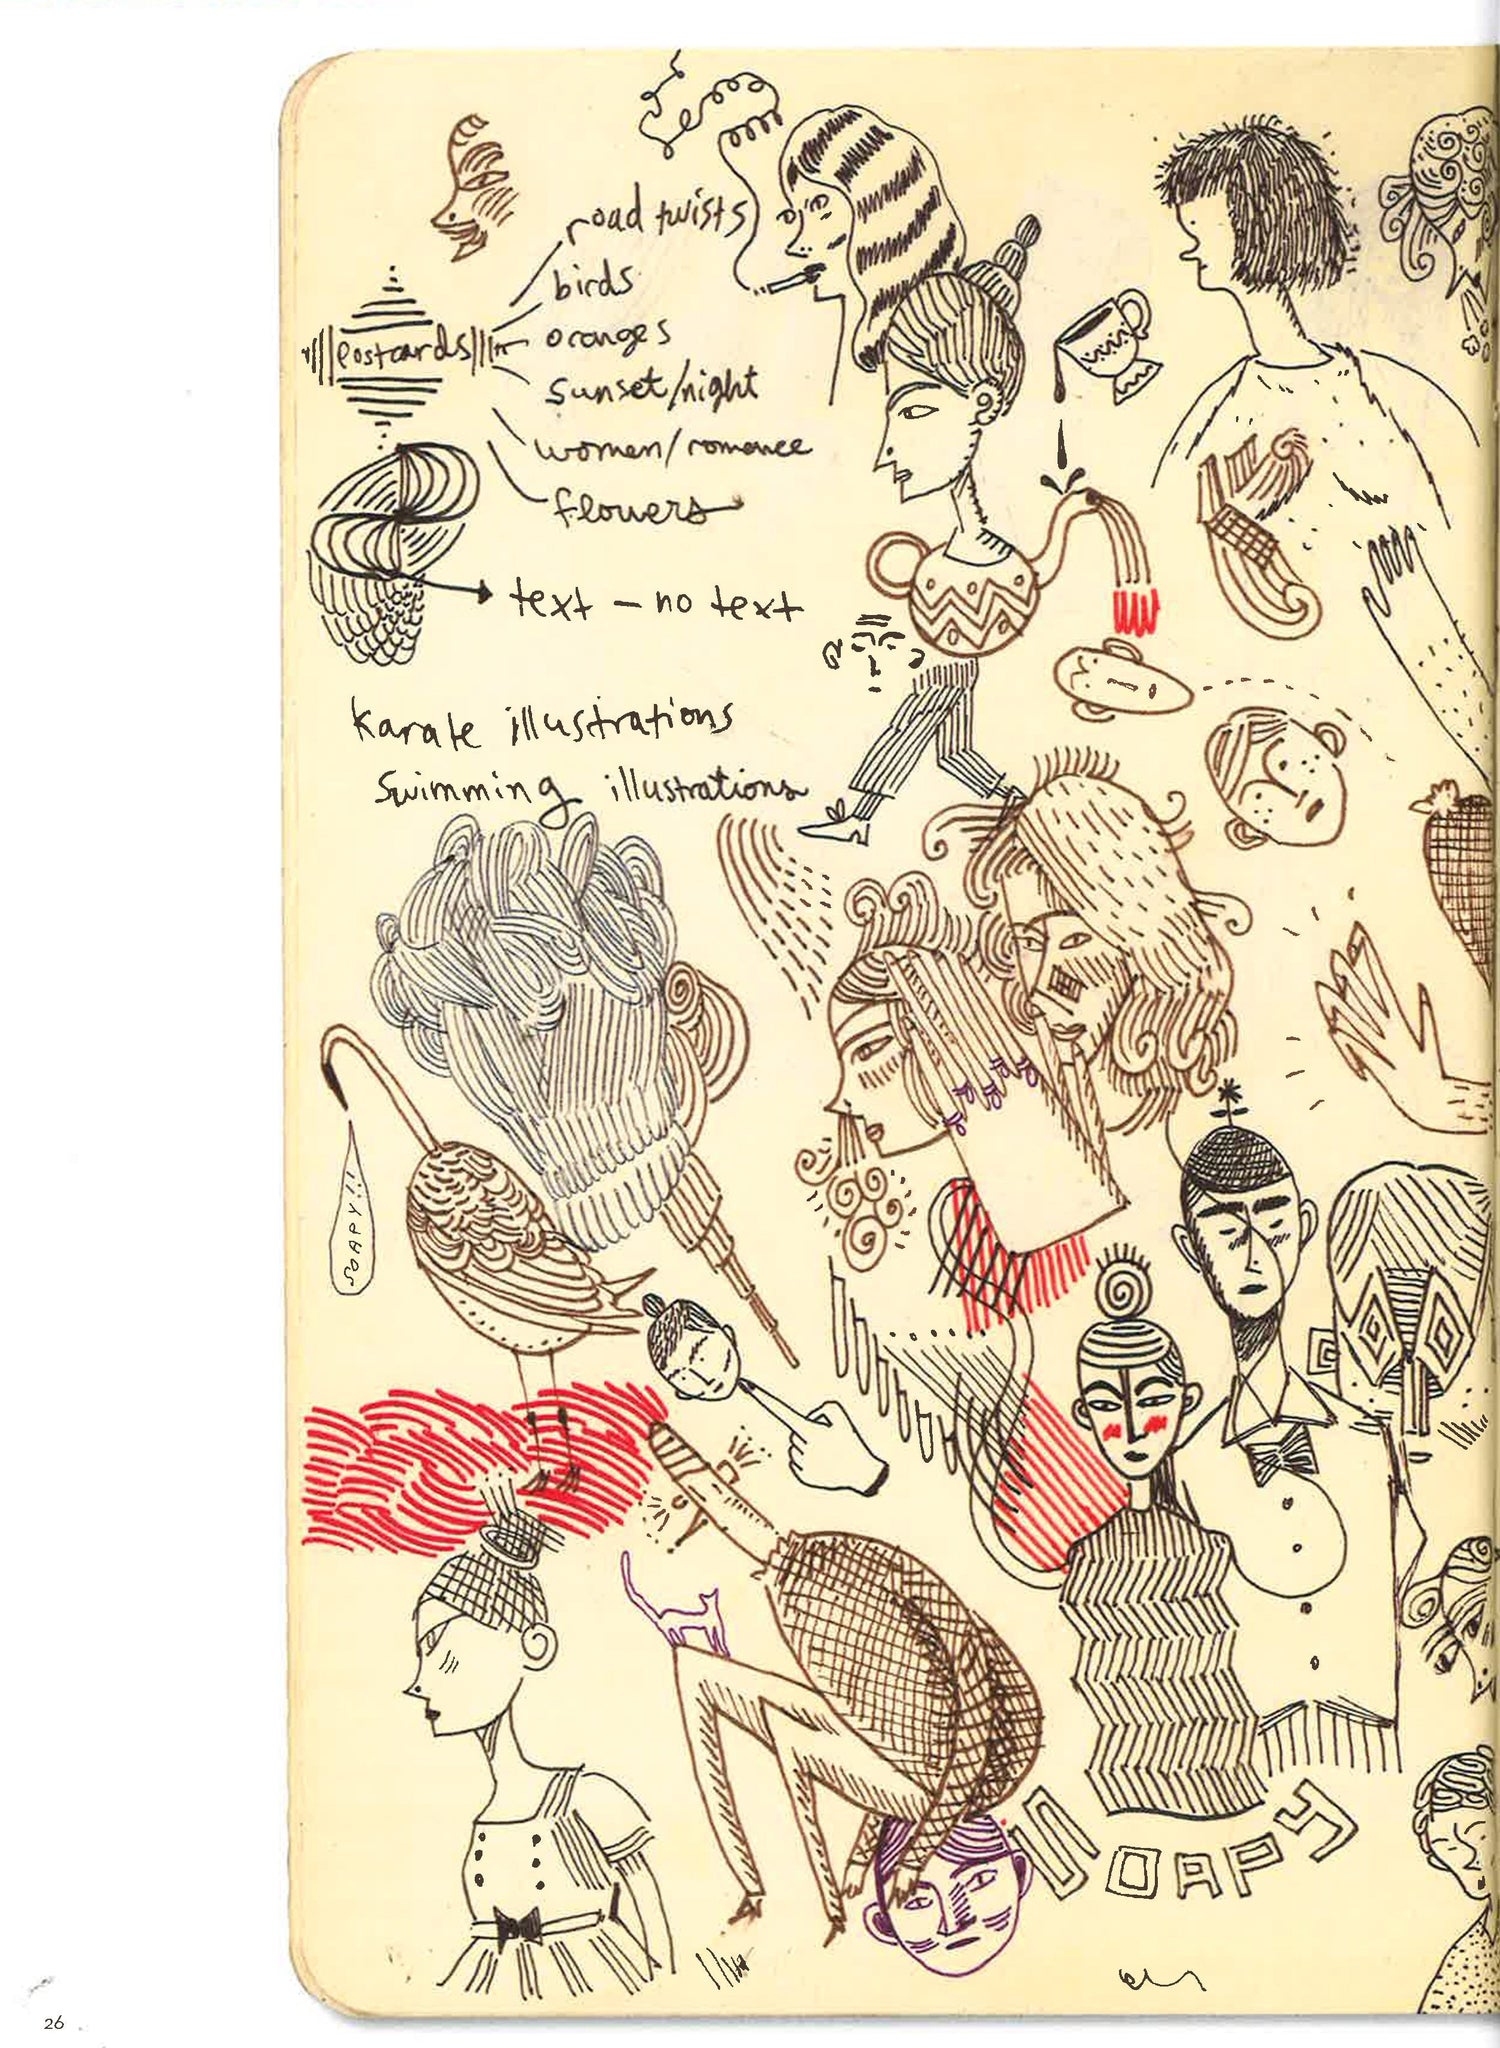 road twists
birds
postcards
oranges
sunset/night
women/romance
flowers
text – no text
Karate illustrations
Swimming illustrations
SOAPY
26